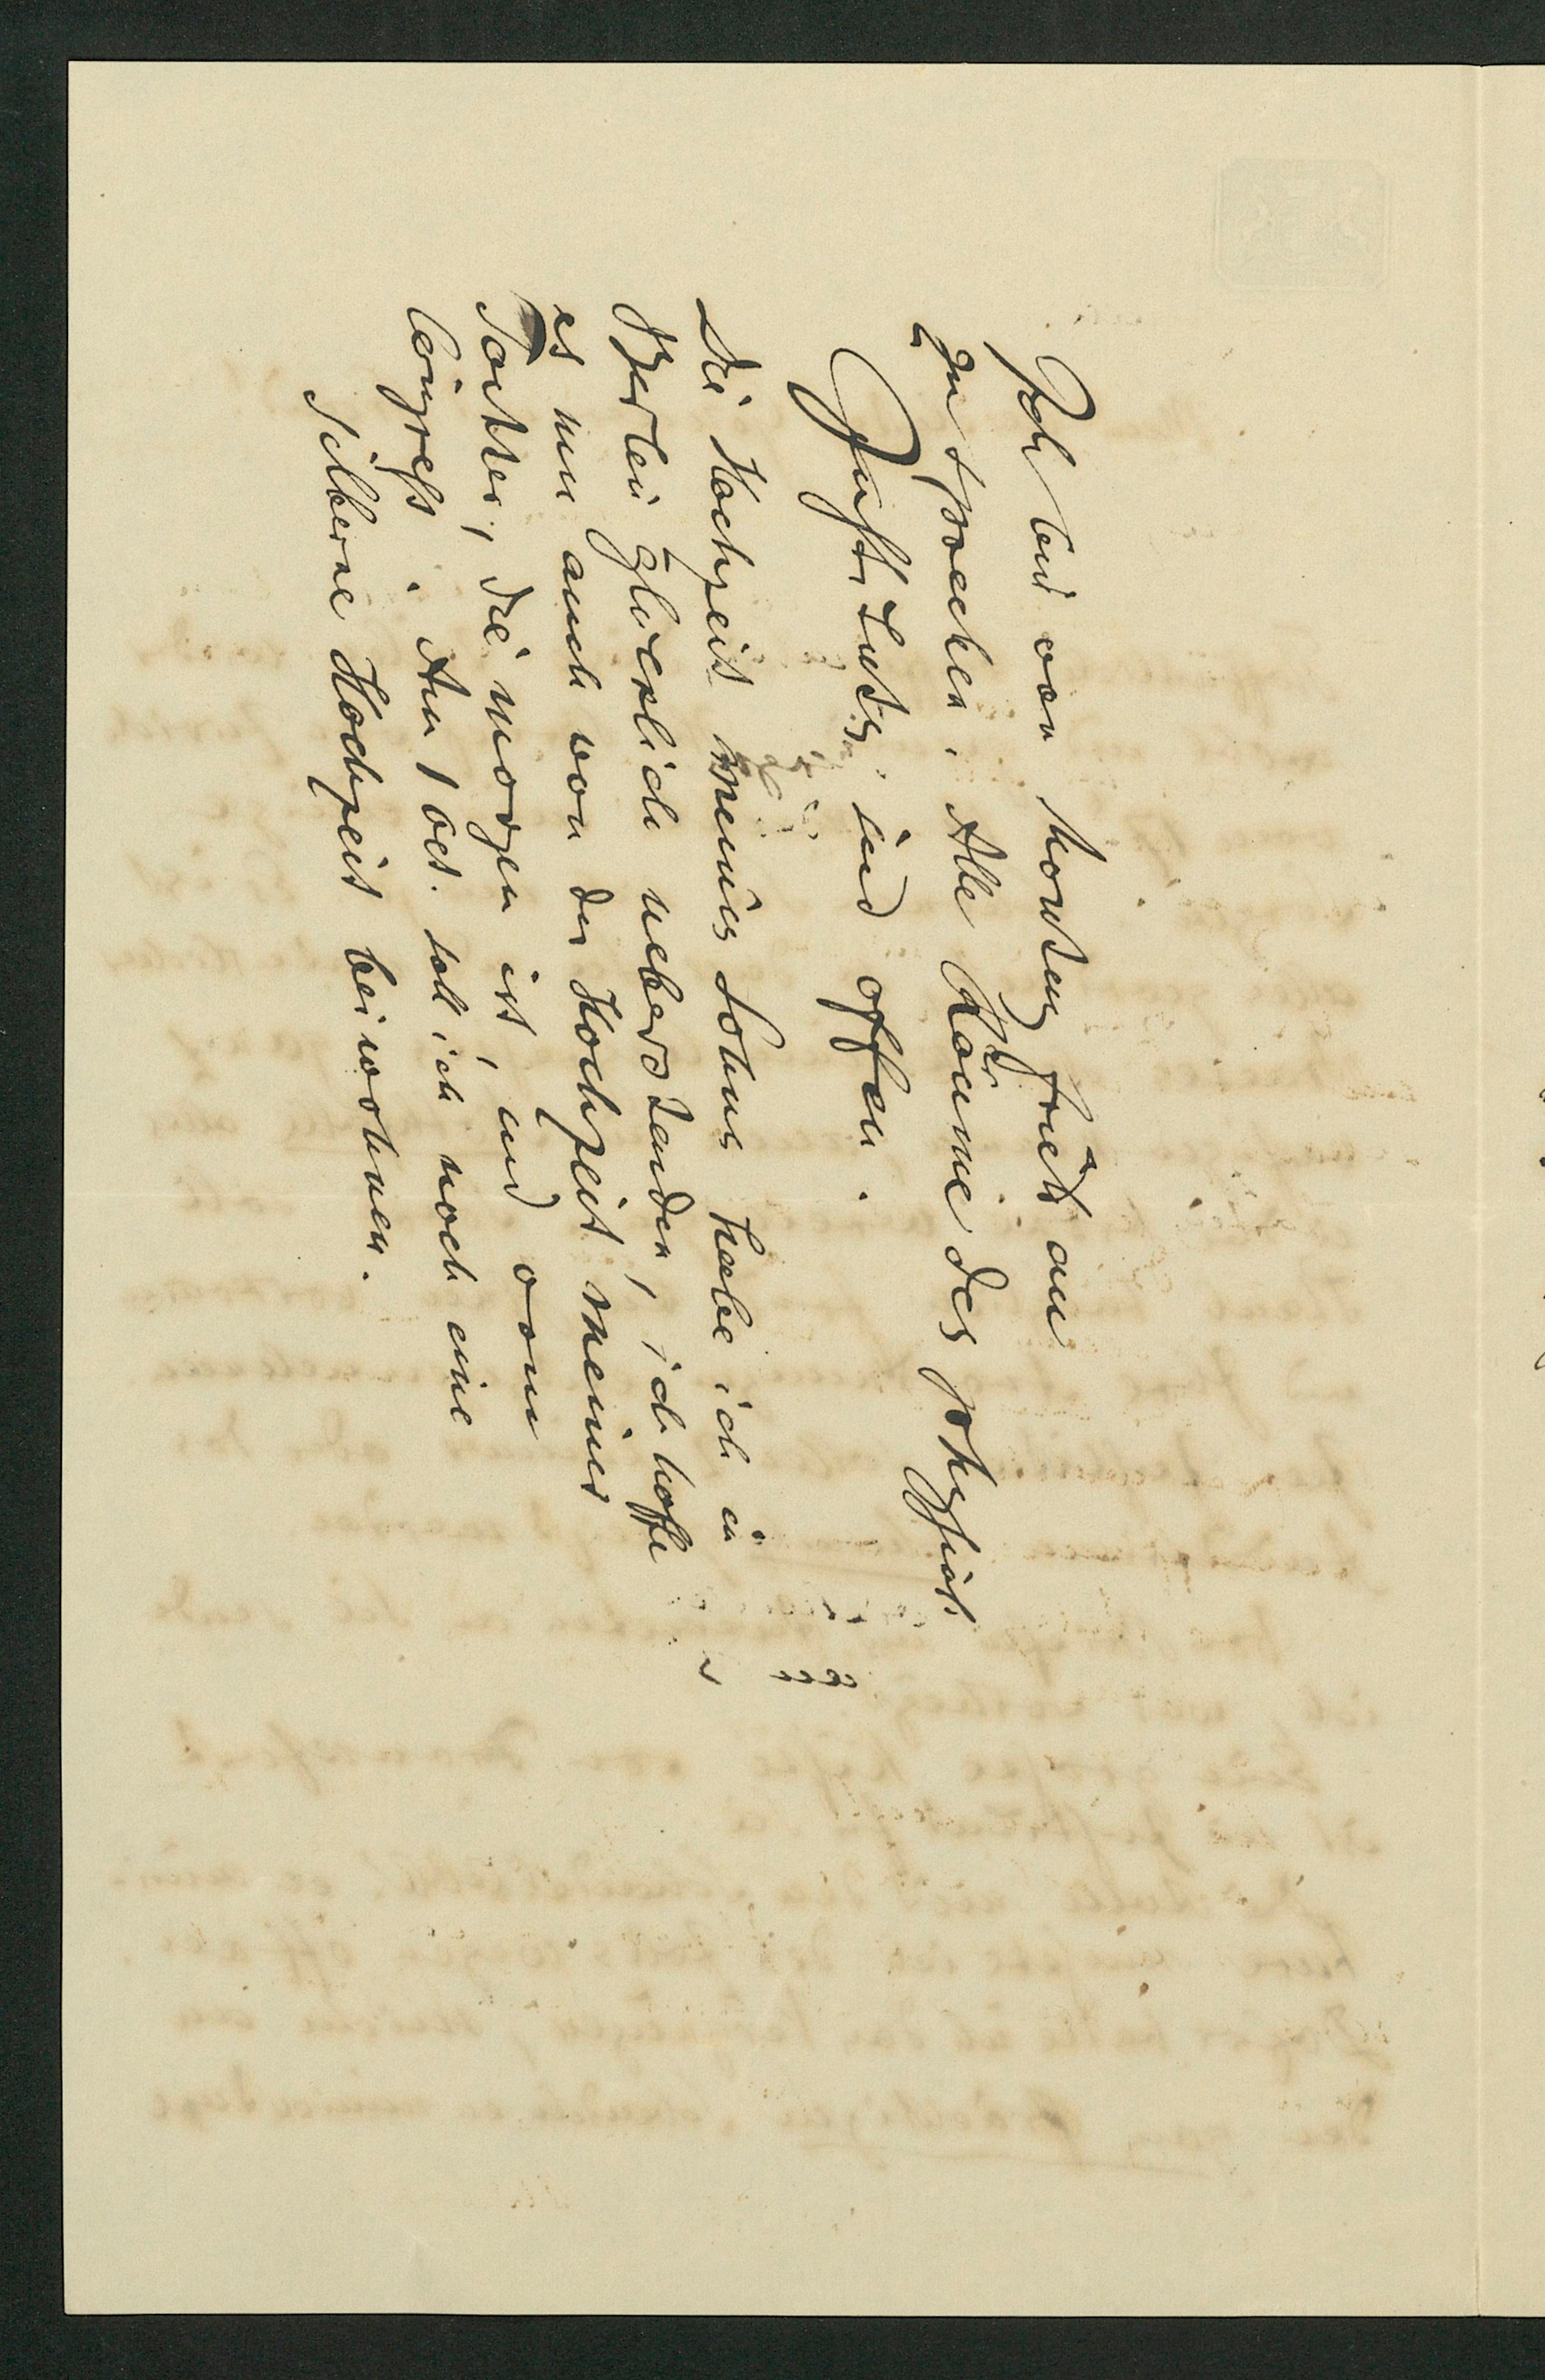 Ich bin von Montag früh an
zu sprechen. Alle Räume des physi
Instituts sind offen.
Die Hochzeit meines Sohns habe ich in
Berlin glücklich ueberstanden, ich hoffe
es nun auch von der Hochzeit meiner
Tochter, die morgen ist, und vom
Congress. Am 1 Oct. soll ich noch eine
silberne Hochzeit beiwohnen.